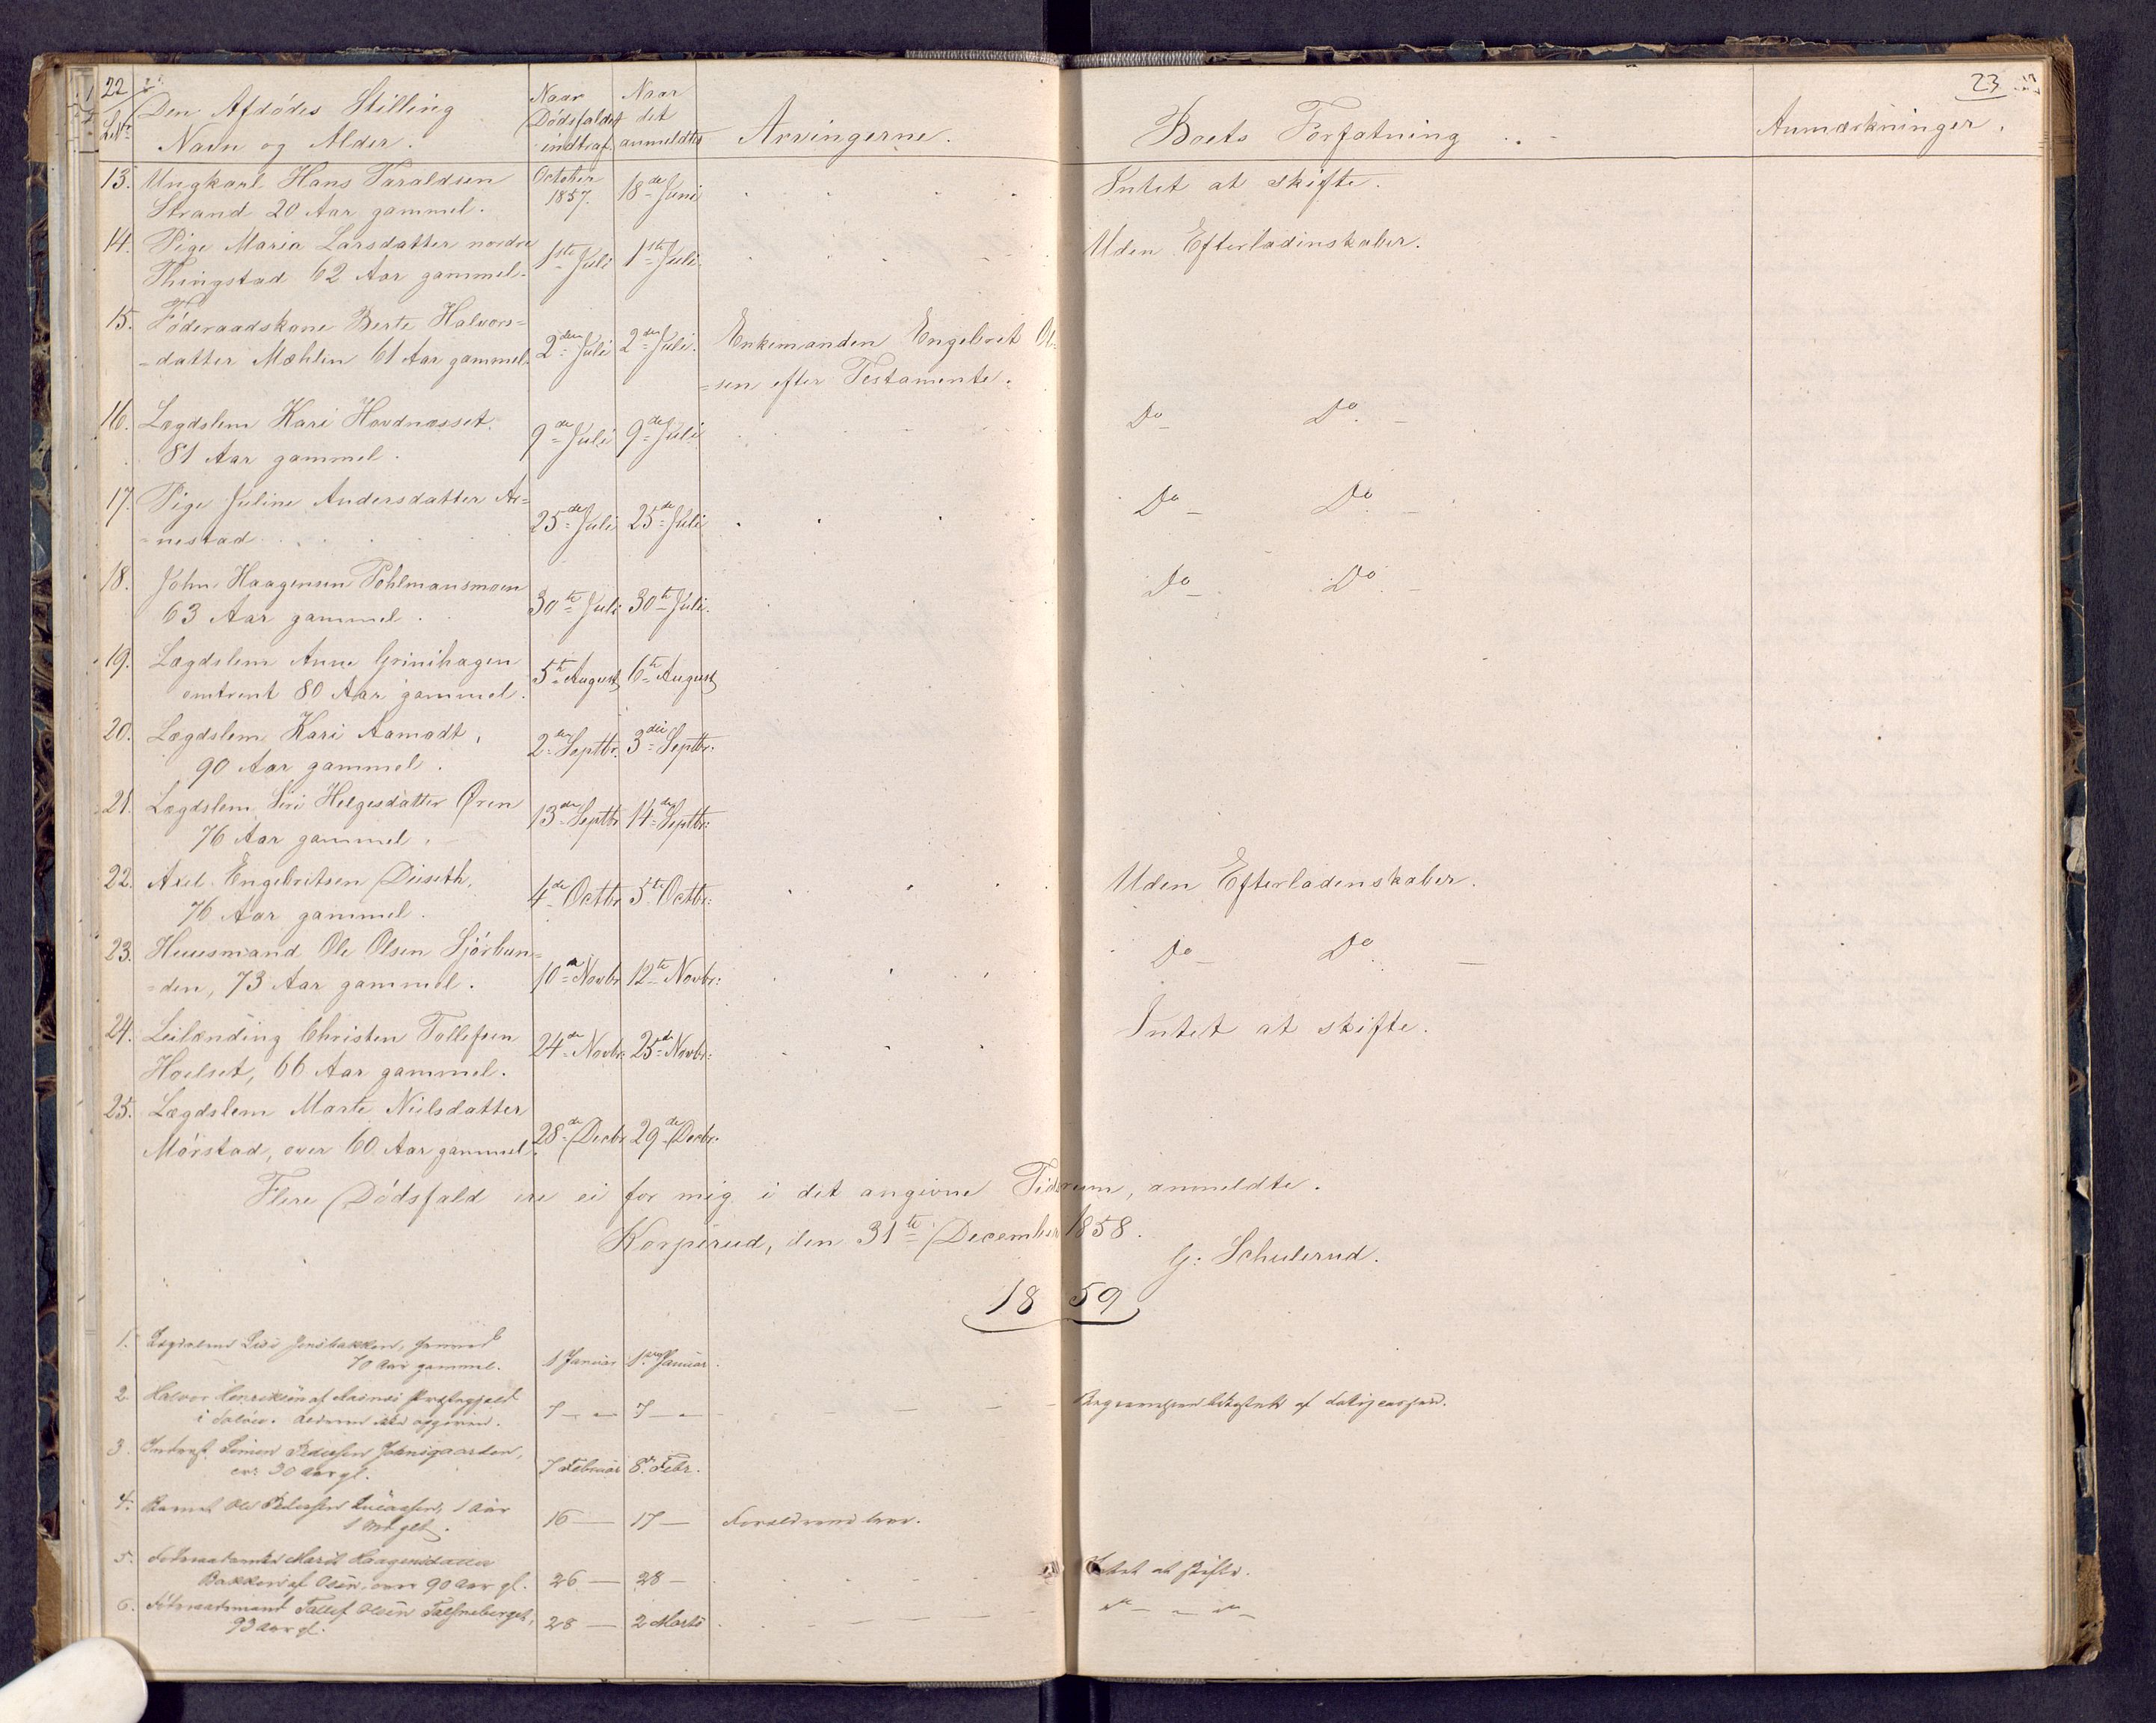 22
23
Den Afdødes Stilling
Navn og Alder.
Naar
Dødsfaldet
indtraf.
Naar
det
anmeldtes
Arvingerne.
Boets Forfatning
Anmærkninger.
13. Ungkarl Hans Taraldsen October 18de Juni Intet at skifte.
Strand 20 Aar gammel. 1857.
14. Pige Maria Larsdatter nordre 1ste Juli 1ste Juli Uden Efterladinskaber.
Thingstad 62 Aar gammel.
15. Föderaadskone Berte Halvors=
=datter Mæhlin 61 Aar gammel. 2den Juli 2den Juli. Enkemanden Engebret Ol=
=sen efter Testamente.
16. Lægdslem Kari Hovdnæsset. 9de Juli 9de Juli Do Do
81 Aar gammel.
17. Pige Juline Andersdatter Ar= 25de Juli 25de Juli Do Do
=nestad
18. John Haagensen Pohlmansmoen 30te Juli 30te Juli. Do Do
63 Aar gammel.
19. Lægdslem Anne Grinihagen 5te August 6te August
omtrent 80 Aar gammel.
20. Lægdslem Kari Aamodt, 2den Septbr. 3die Septbr.
90 Aar gammel.
21. Lægdslem Siri Helgesdatter Øren 13de Septbr 14de Septbr:
76 Aar gammel.
22. Axel Engebretsen Diseth, 4de Octbr 5te Octbr: Uden Efterladenskaber.
76 Aar gammel.
23. Huusmand Ole Olsen Sjörbun= 10de Novbr 12te Novbr: Do Do
=den, 73 Aar gammel.
24. Leilænding Christen Tollefsen 24de Novbr: 25de Novbr: Intet at skifte.
Hoelset, 66 Aar gammel.
25. Lægdslem Marte Nielsdatter
Mörstad, over 60 Aar gammel. 28de Decbr 29de Decbr.
Flere Dödsfald ere ei for mig i det angivne Tidsrum, anmeldte.
Korperud, den 31te December 1858.
G: Schulerud.
1859
1. Lægdslem
70 Aar gammel. 1 Januar 1. Januar.
2. Halvor Henriksen af Præstegjeld 7 7
i opgiven.
3. Simen Pedersen Jonsgaarden, 7 Februar 8de Febr.
gl.
4. Barnet Ole Pedersen 1 Aar 16 17
5. Marit Haagensdatter
Bakken af Osen, over 90 Aar gl. 26 28 Intet at skifte.
6. Föderaadsmand Tollef Olsen 28 2 Marts
93 Aar gl.